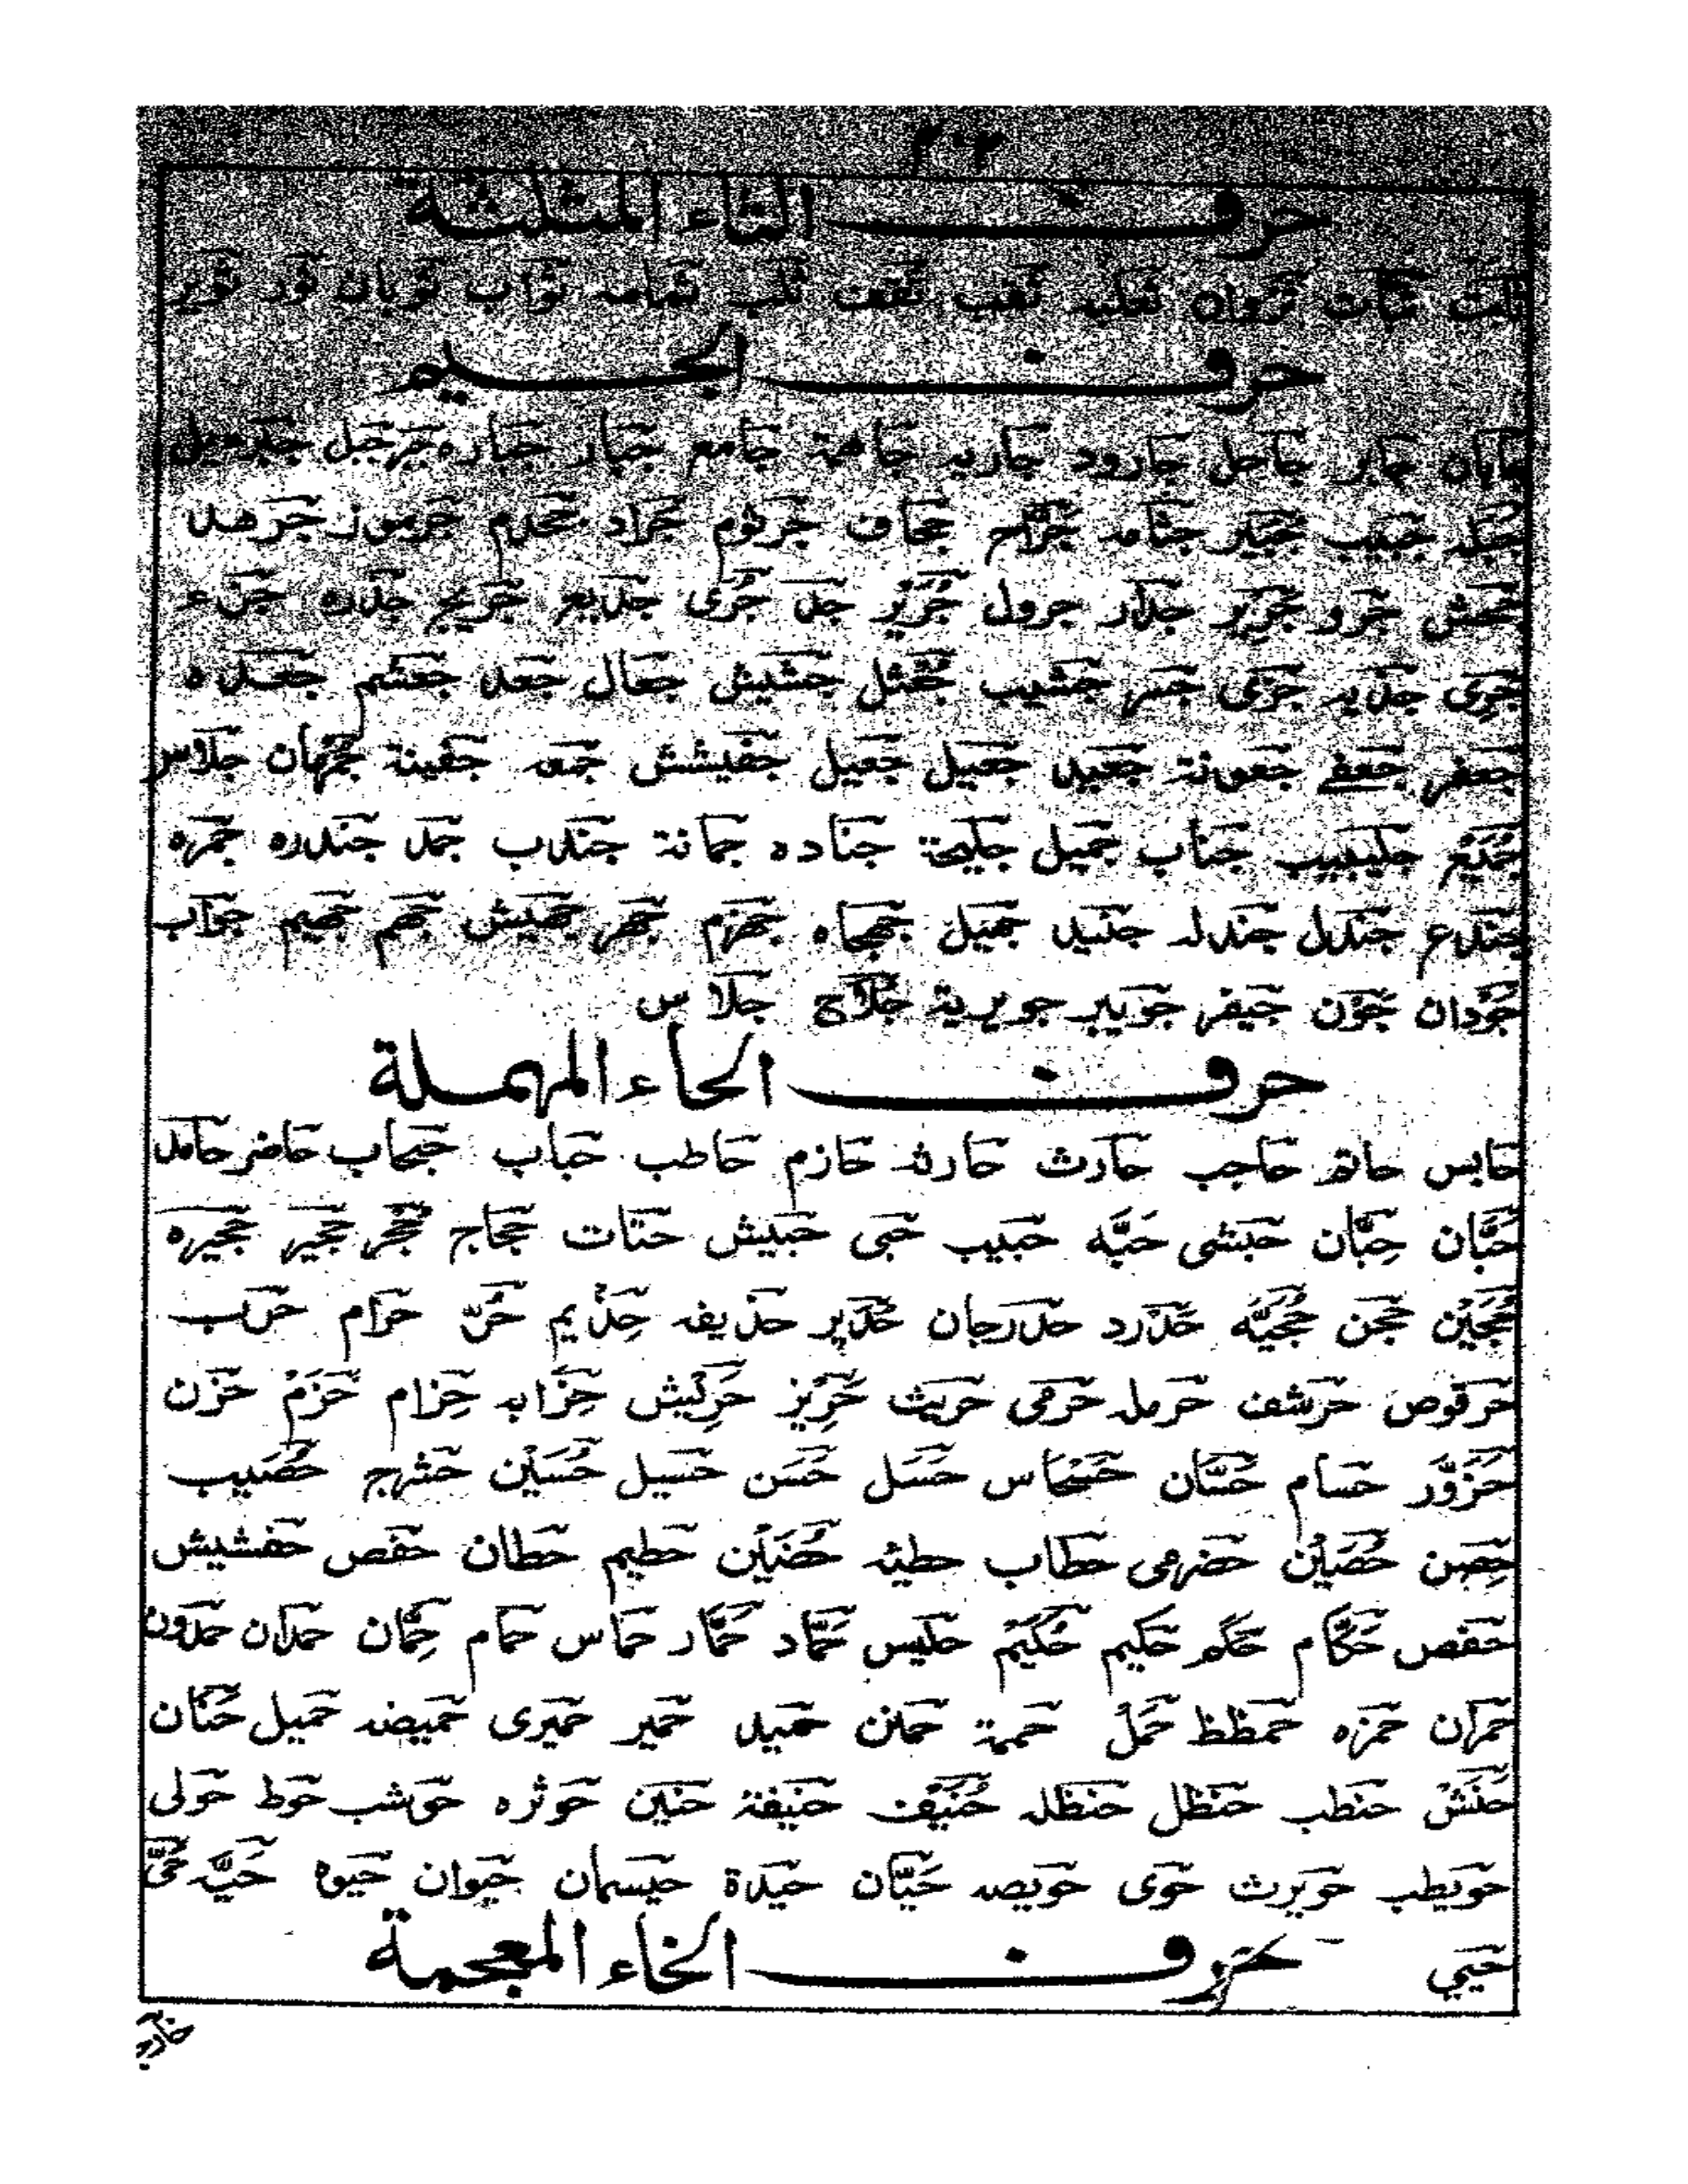 ٢٠٢
حرف الثاء المثلثة
ثابت ثبات ثروان ثعلبه ثعب ثقف ثلب ثمامه ثواب ثوبان ثور ثوير
حرف الجيم
جابان جابر جاحل جارود جاريه جاهمة جامع جبار جباره جبر جبل
جبله جبيب جبير جثامه جراح جحاف جرثوم جراد جحدم جرموز جرهد
جحش جرو جرير جدار جرول جرير جد جرى جديع جريج جدره جزء
جرى جذيه جزى جسر جشيب جشيش جعال جعد جعشم جعده
جعفر جعفى جعونة جعيد جعيل جعيل جفيشش جمعه جفينة جلاس
جميع جليبيب جناب جميل جليحة جناده جمانة جندب جمد جندره جمره
جندع جندل جندله جنيد جميل جهجاه جهزم جهر جهيش جهم جهيم جواب
جودان جون جيفر جويبر جويرية جلاح جلاس
حرف الحاء المهملة
حابس حاتم حاجب حارث حارثه حازم حاطب حباب حبحاب حاضر حامد
حبان حبان حبشى حبه حبيب حبى حبيش حتات حجاج حجر حجير حجيره
حجين حجن حجيه حدرد حدرجان حدير حذيفه حذيم حر حرام حرب
حرقوص حرشف حرمله حرمى حريث حريز حريش حزابه حزام حزم حزن
حزور حسام حسان حسحاس حسل حسن حسيل حسين حشرج حصيب
حصن حصين حضرمى حطاب حطيئه حضين حطيم حطان حفص حفشيش
حفص حكام حكم حكيم حكيم حليس حماد حمار حماس حمام حمان حمدان حمدون
حمران حمزه حمظظ حمل حممة حمنن حميد حمير حميرى حميضه حميل حنان
حنش حنطب حنظل حنظله حنيف حنيفة حنين حوثره حوشب حوط حولى
حويطب حويرث حوى حويصه حيان حيدة حيسمان حيوان حيوه حيه حى
حيي
حرف الخاء المعجمة
خارجه